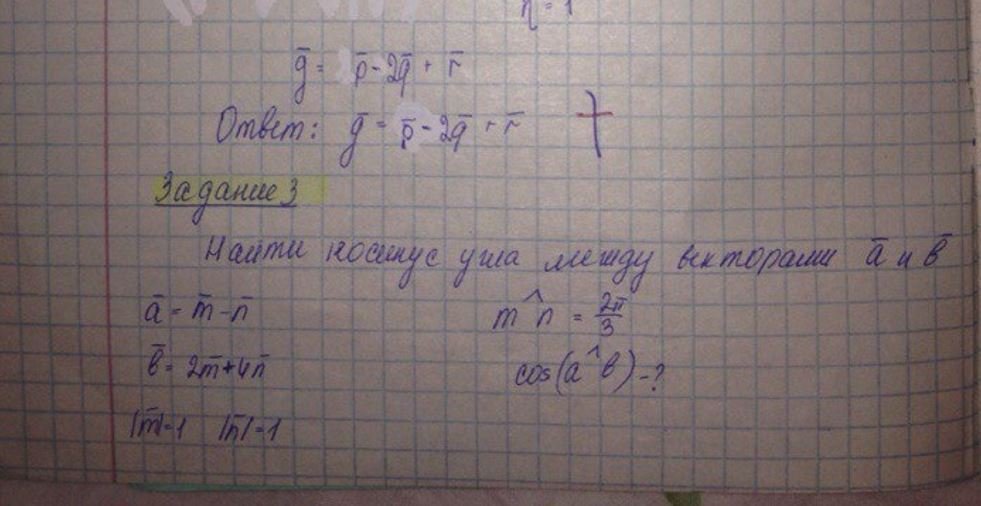 n = 1
g̅ = p̅ - 2q̅ + r̅
Ответ: g̅ = p̅ - 2q̅ + r̅
Задание 3
Найти косинус угла между векторами a̅ и b̅
a̅ = m̅ - n̅
m^n = 2π/3
b̅ = 2m̅ + 4n̅
cos(a^b) - ?
|m̅| = 1 |n̅| = 1